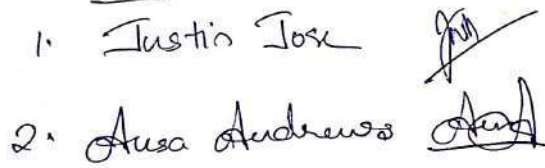 1. Justin Jose
2. Ausa Andrews